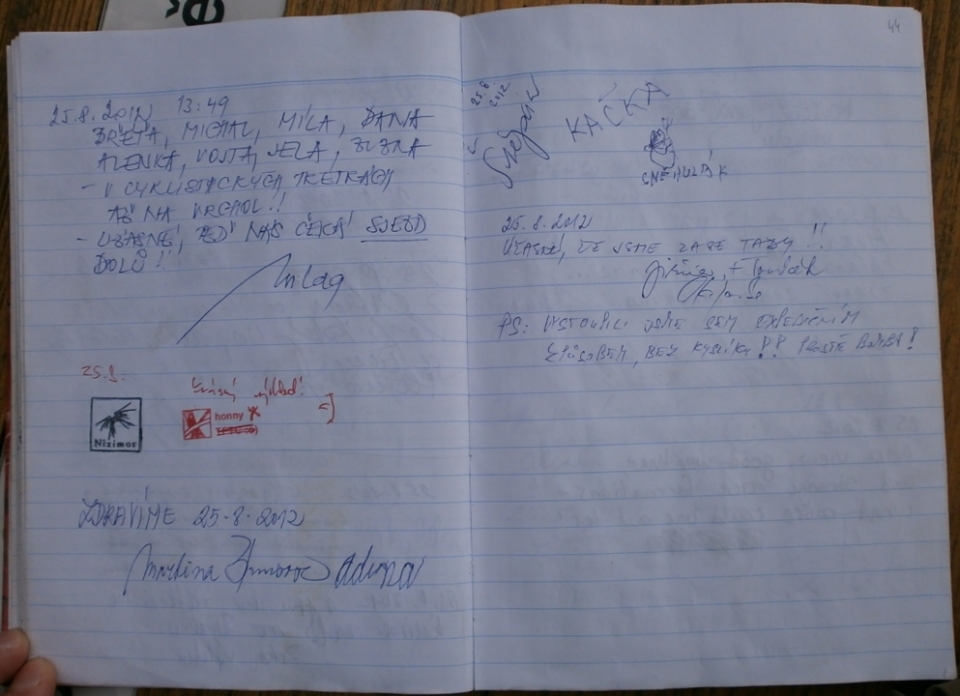 25.8.2012 13:49
BŘÉŤA, MICHAL, MÍLA, DANA
ALENKA, VOJTA, JELA, ZUZNA
- V CYKLISTICKÝCH TRETRÁCH
AŽ NA VRCHOL!!
- ÚŽASNÉ, TEĎ NÁS ČEKÁ SJEZD
DOLŮ!!
25.8.
Nizimos
Krásný výhled!
honny
ZDRAVÍME 25.8.2012
Martina
44
25.8.2012
Štěpán
KAČKA
SNĚHULÁK
25.8.2012
ÚŽASNÉ, ŽE JSME ZASE TADY!!
PS: VYSTOUPILI JSME SEM EXPEDIČNÍM
ZPŮSOBEM, BEZ KYSLÍKU!! PROSTĚ BOMBA!